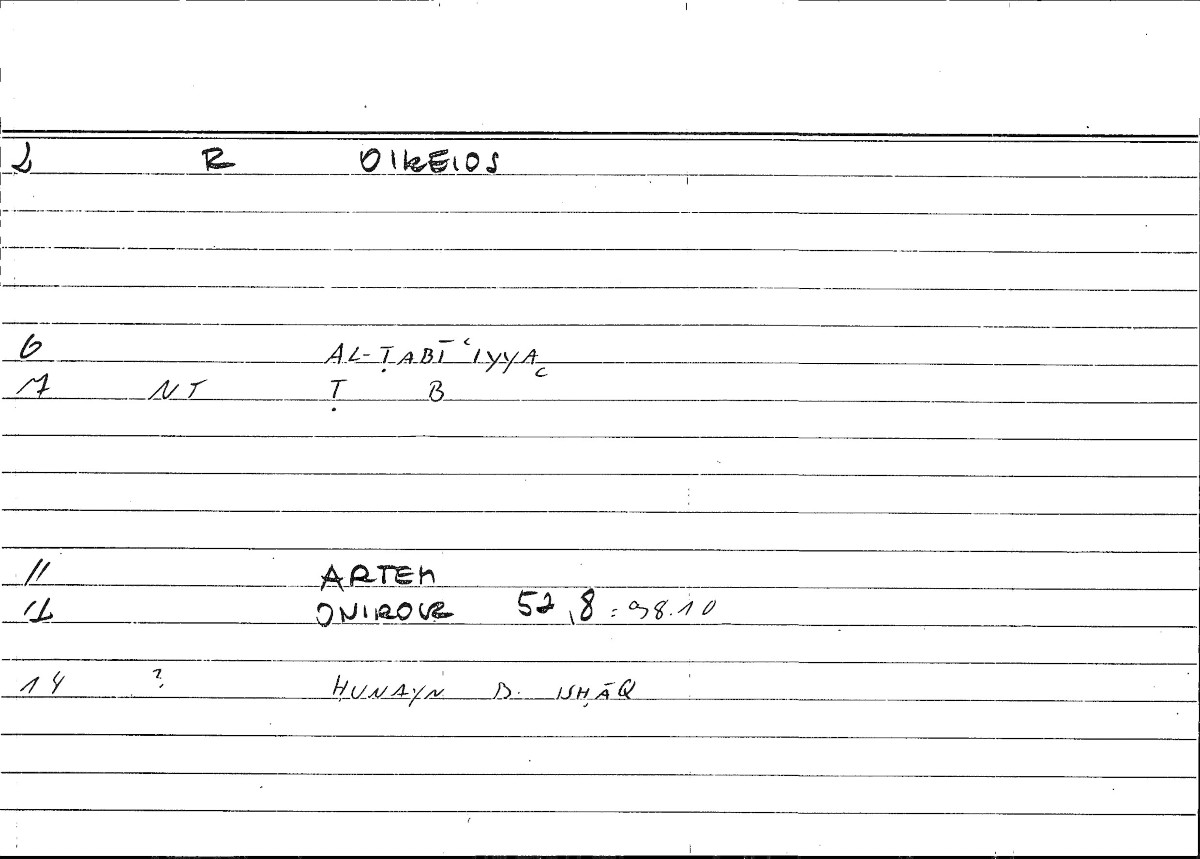 2 R OIKEIOS
6 AL-ṬABĪʿIYYA
7 NT Ṭ B
11 ARTEM
12 ONIROCR 52,8 = 98.10
14 ? ḤUNAYN B. ISḤĀQ